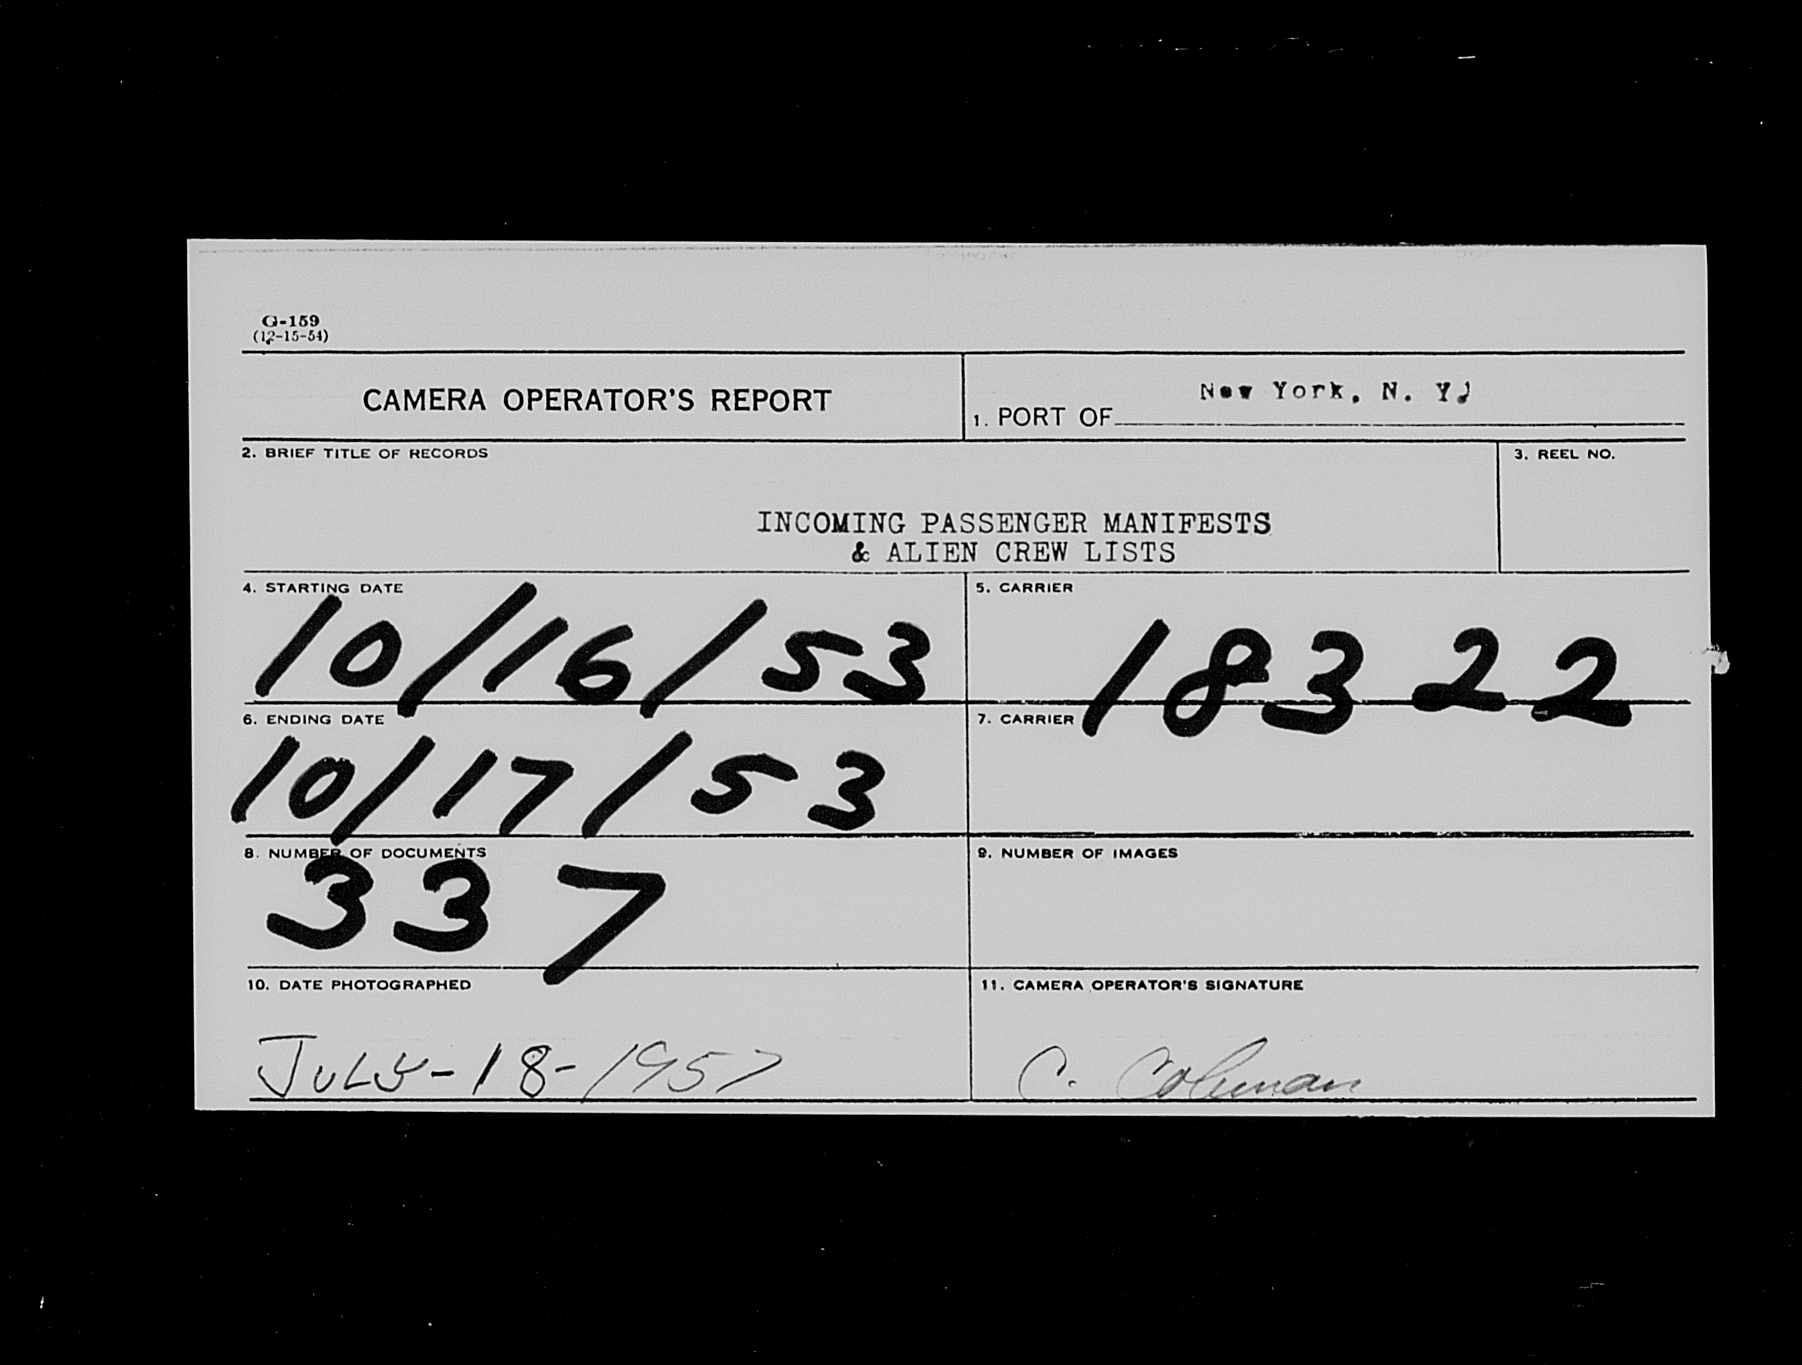 G-159
(12-15-54)
CAMERA OPERATOR'S REPORT
1. PORT OF New York, N. Y.
2. BRIEF TITLE OF RECORDS
3. REEL NO.
INCOMING PASSENGER MANIFESTS
& ALIEN CREW LISTS
4. STARTING DATE
10/16/53
5. CARRIER
18322
6. ENDING DATE
10/17/53
7. CARRIER
8. NUMBER OF DOCUMENTS
337
9. NUMBER OF IMAGES
10. DATE PHOTOGRAPHED
JULY-18-1957
11. CAMERA OPERATOR'S SIGNATURE
C. Coleman